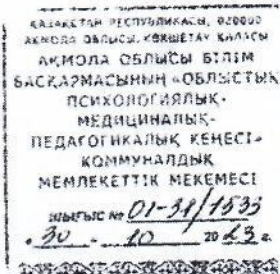 ҚАЗАҚСТАН РЕСПУБЛИКАСЫ, 020000
АҚМОЛА ОБЛЫСЫ, КӨКШЕТАУ ҚАЛАСЫ
АҚМОЛА ОБЛЫСЫ БІЛІМ
БАСҚАРМАСЫНЫҢ «ОБЛЫСТЫҚ
ПСИХОЛОГИЯЛЫҚ-
МЕДИЦИНАЛЫҚ-
ПЕДАГОГИКАЛЫҚ КЕҢЕСІ»
КОММУНАЛДЫҚ
МЕМЛЕКЕТТІК МЕКЕМЕСІ
ШЫҒЫС № 01-31/1533
«30» 10 2023 г.